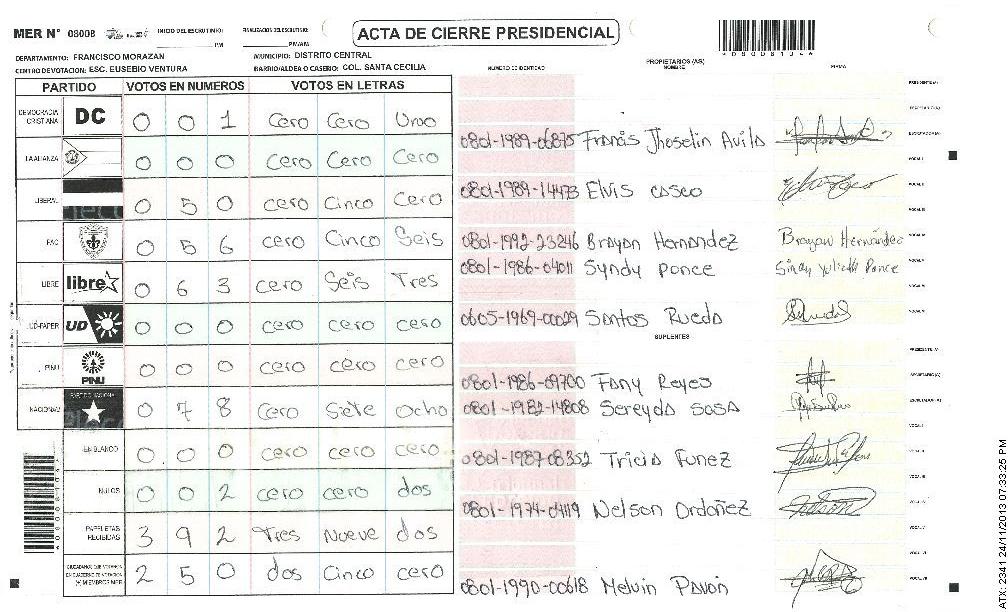 MER N° 08008 INICIO DEL ESCRUTINIO: PM FINALIZACION DEL ESCRUTINIO: PM/AM
ACTA DE CIERRE PRESIDENCIAL
DEPARTAMENTO: FRANCISCO MORAZAN MUNICIPIO: DISTRITO CENTRAL
CENTRO DE VOTACION: ESC. EUSEBIO VENTURA BARRIO/ALDEA O CASERIO: COL. SANTA CECILIA
NUMERO DE IDENTIDAD PROPIETARIOS (AS) NOMBRE FIRMA
PARTIDO VOTOS EN NUMEROS VOTOS EN LETRAS
DEMOCRACIA CRISTIANA DC 0 0 1 Cero Cero Uno
LA ALIANZA 0 0 0 Cero Cero Cero
LIBERAL 0 5 0 cero Cinco Cero
PAC 0 5 6 cero Cinco Seis
LIBRE libre 0 6 3 cero Seis Tres
UD-FAPER UD 0 0 0 cero cero cero
PINU PINU 0 0 0 cero cero cero
NACIONAL 0 7 8 Cero Siete ocho
EN BLANCO 0 0 0 cero cero cero
NULOS 0 0 2 cero cero dos
PAPELETAS RECIBIDAS 3 9 2 Tres Nueve dos
2 5 0 dos Cinco cero
0801-1989-06875 Francis Jhoselin Avila
0801-1989-14473 Elvis casco
0801-1992-23246 Brayan Hernandez Brayan Hernández
0801-1986-04011 Syndy ponce Sindy Yulieth Ponce
0605-1969-00029 Santos Rueda
SUPLENTES
0801-1986-09700 Fany Reyes
0801-1982-14808 Sereyda SosA
0801-1987-08352 Tricia Funez
0801-1974-04119 Nelson Ordoñez
0801-1990-00618 Melvin Pavon
ATX: 2341 24/11/2013 07:33:25 PM